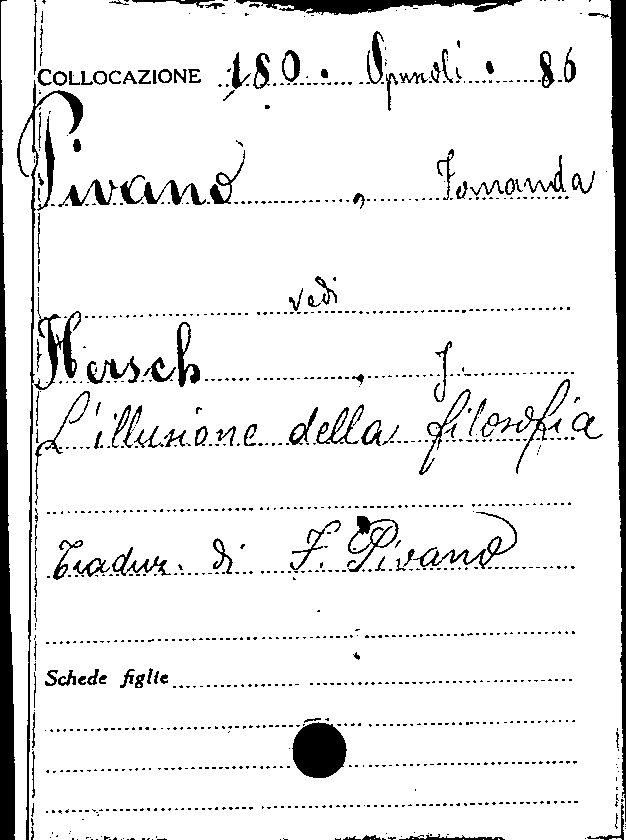 COLLOCAZIONE 180 . Opuscoli . 86
Pivano , Fernanda
vedi
Hersch , J.
L'illusione della filosofia
Traduz. di F. Pivano
Schede figlie